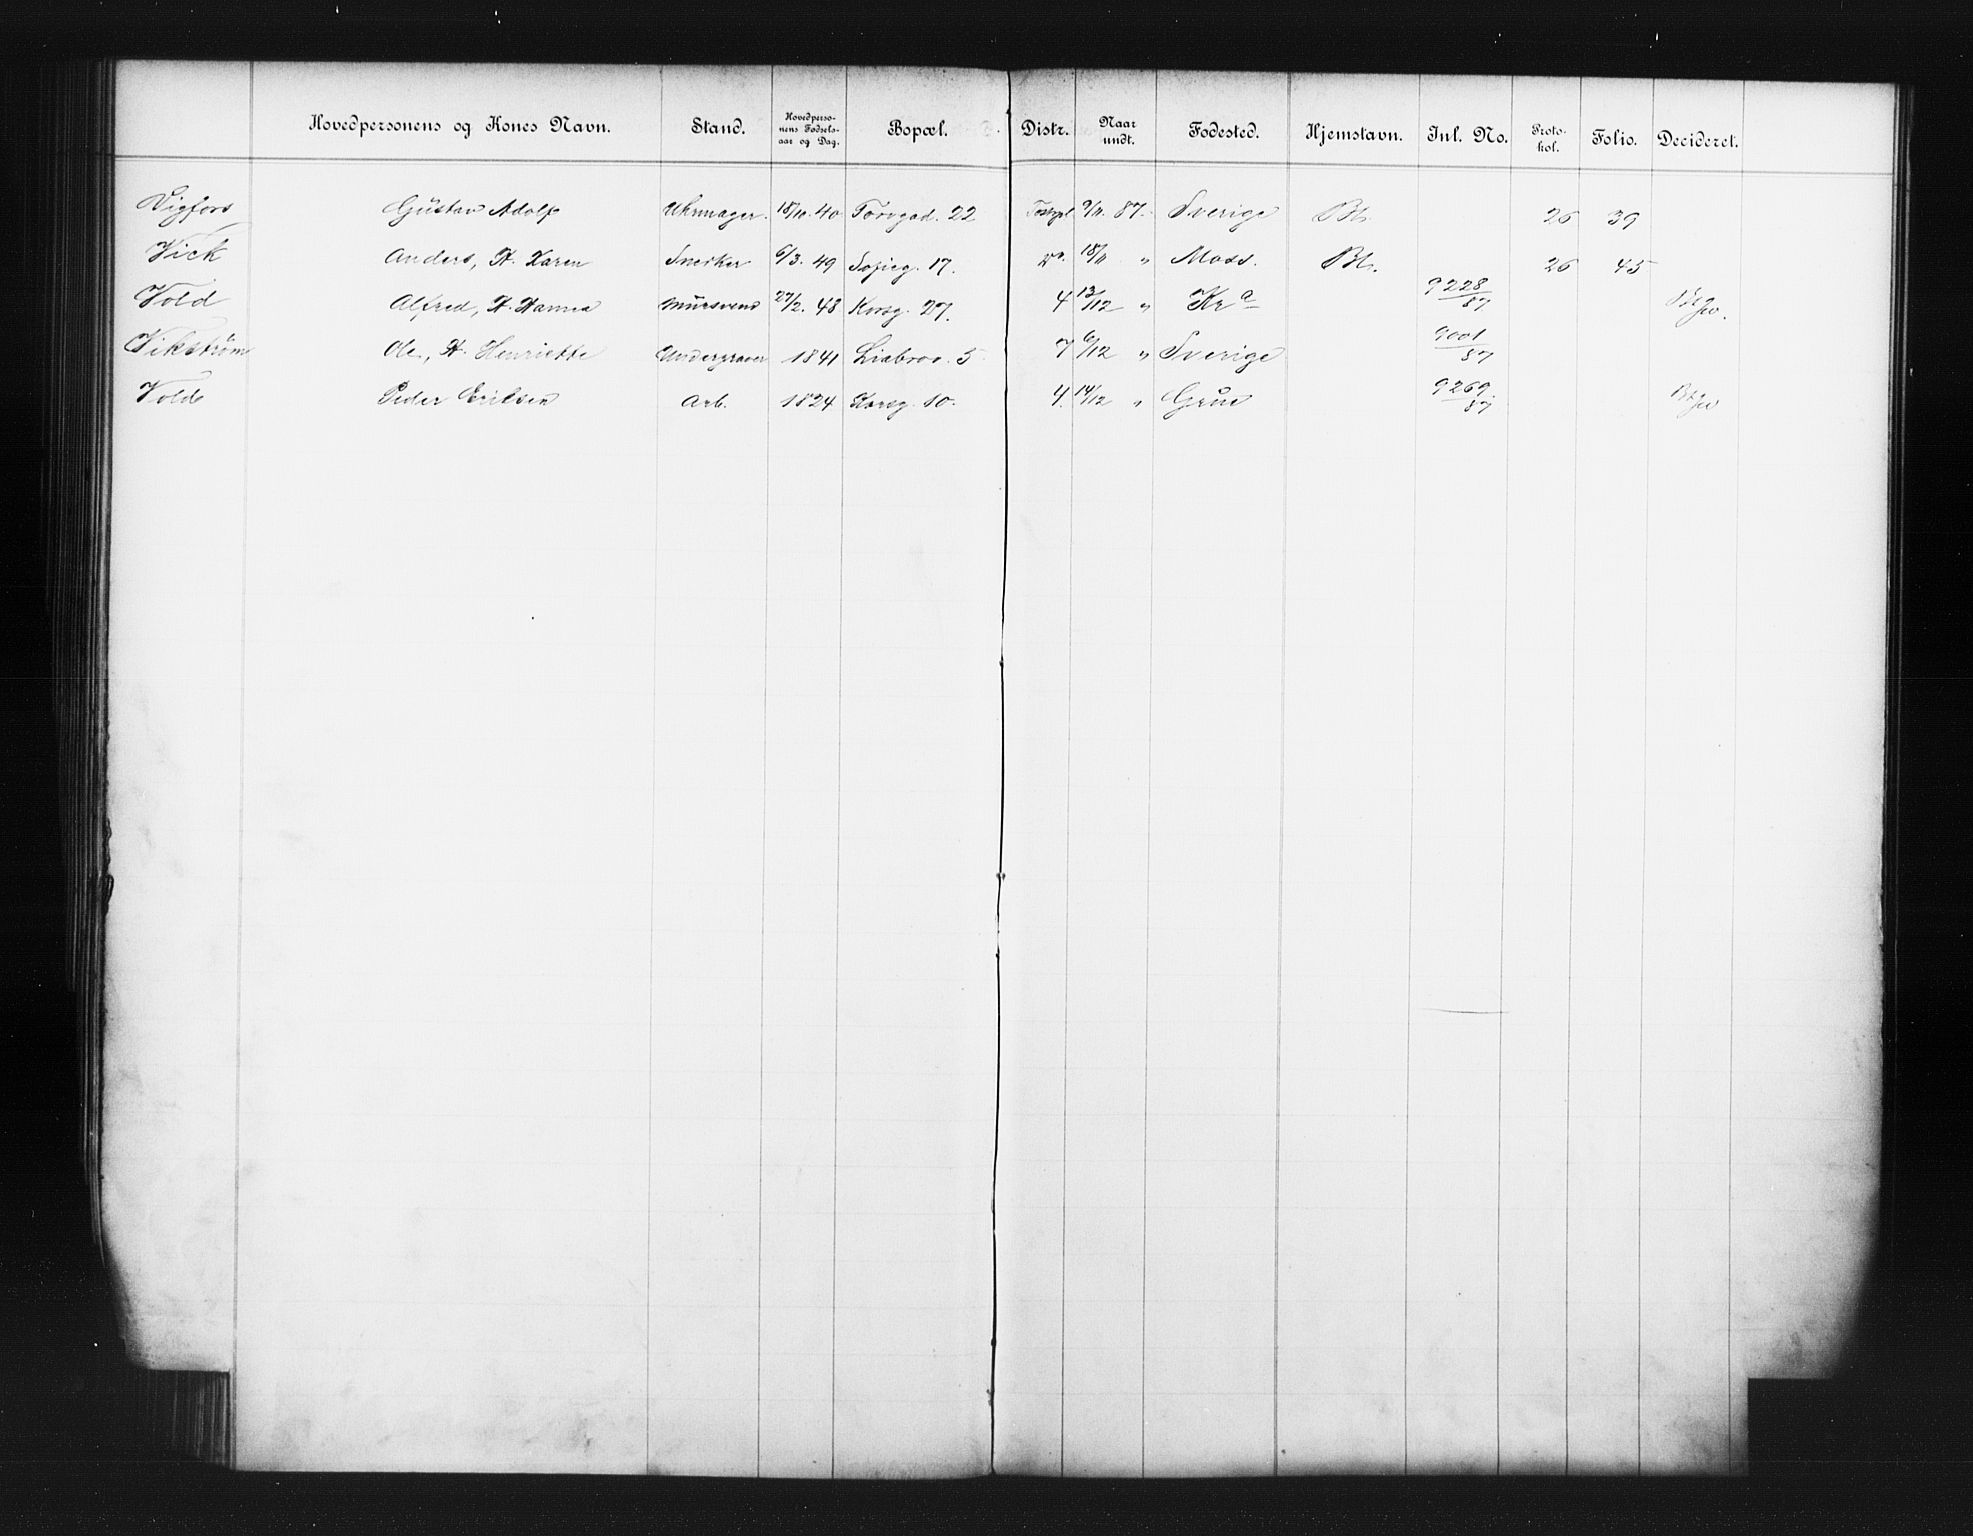 Hovedpersonens og Kones Navn. Stand. Hovedperso-nens Fødsels-aar og Dag. Bopæl. Distr. Naar undt. Fødested. Hjemstavn. Inl. No. Proto-kol. Folio. Decideret.
Vigfors Gustav Adolf Uhrmager. 18/10. 40 Torvgad. 22 9/11 87. Sverige Bl. 26 39
Vick Anders, H. Karen Snedker 6/3. 49 Sofieg. 17. Do. 18/11 " Moss. Bl. 26 45
Vold Alfred, H. Hanna Mursvend 27/2. 48 Korsg. 27. 4 13/12 " Kra 9228/87
Vikström Ole, H. Henriette Undergraver 1841 Liabrov. 5 7 6/12 " Sverige 9001/87
Vold Peder Eriksen Arb. 1824 Korsg. 10. 4. 14/12 " Grue 9269/87